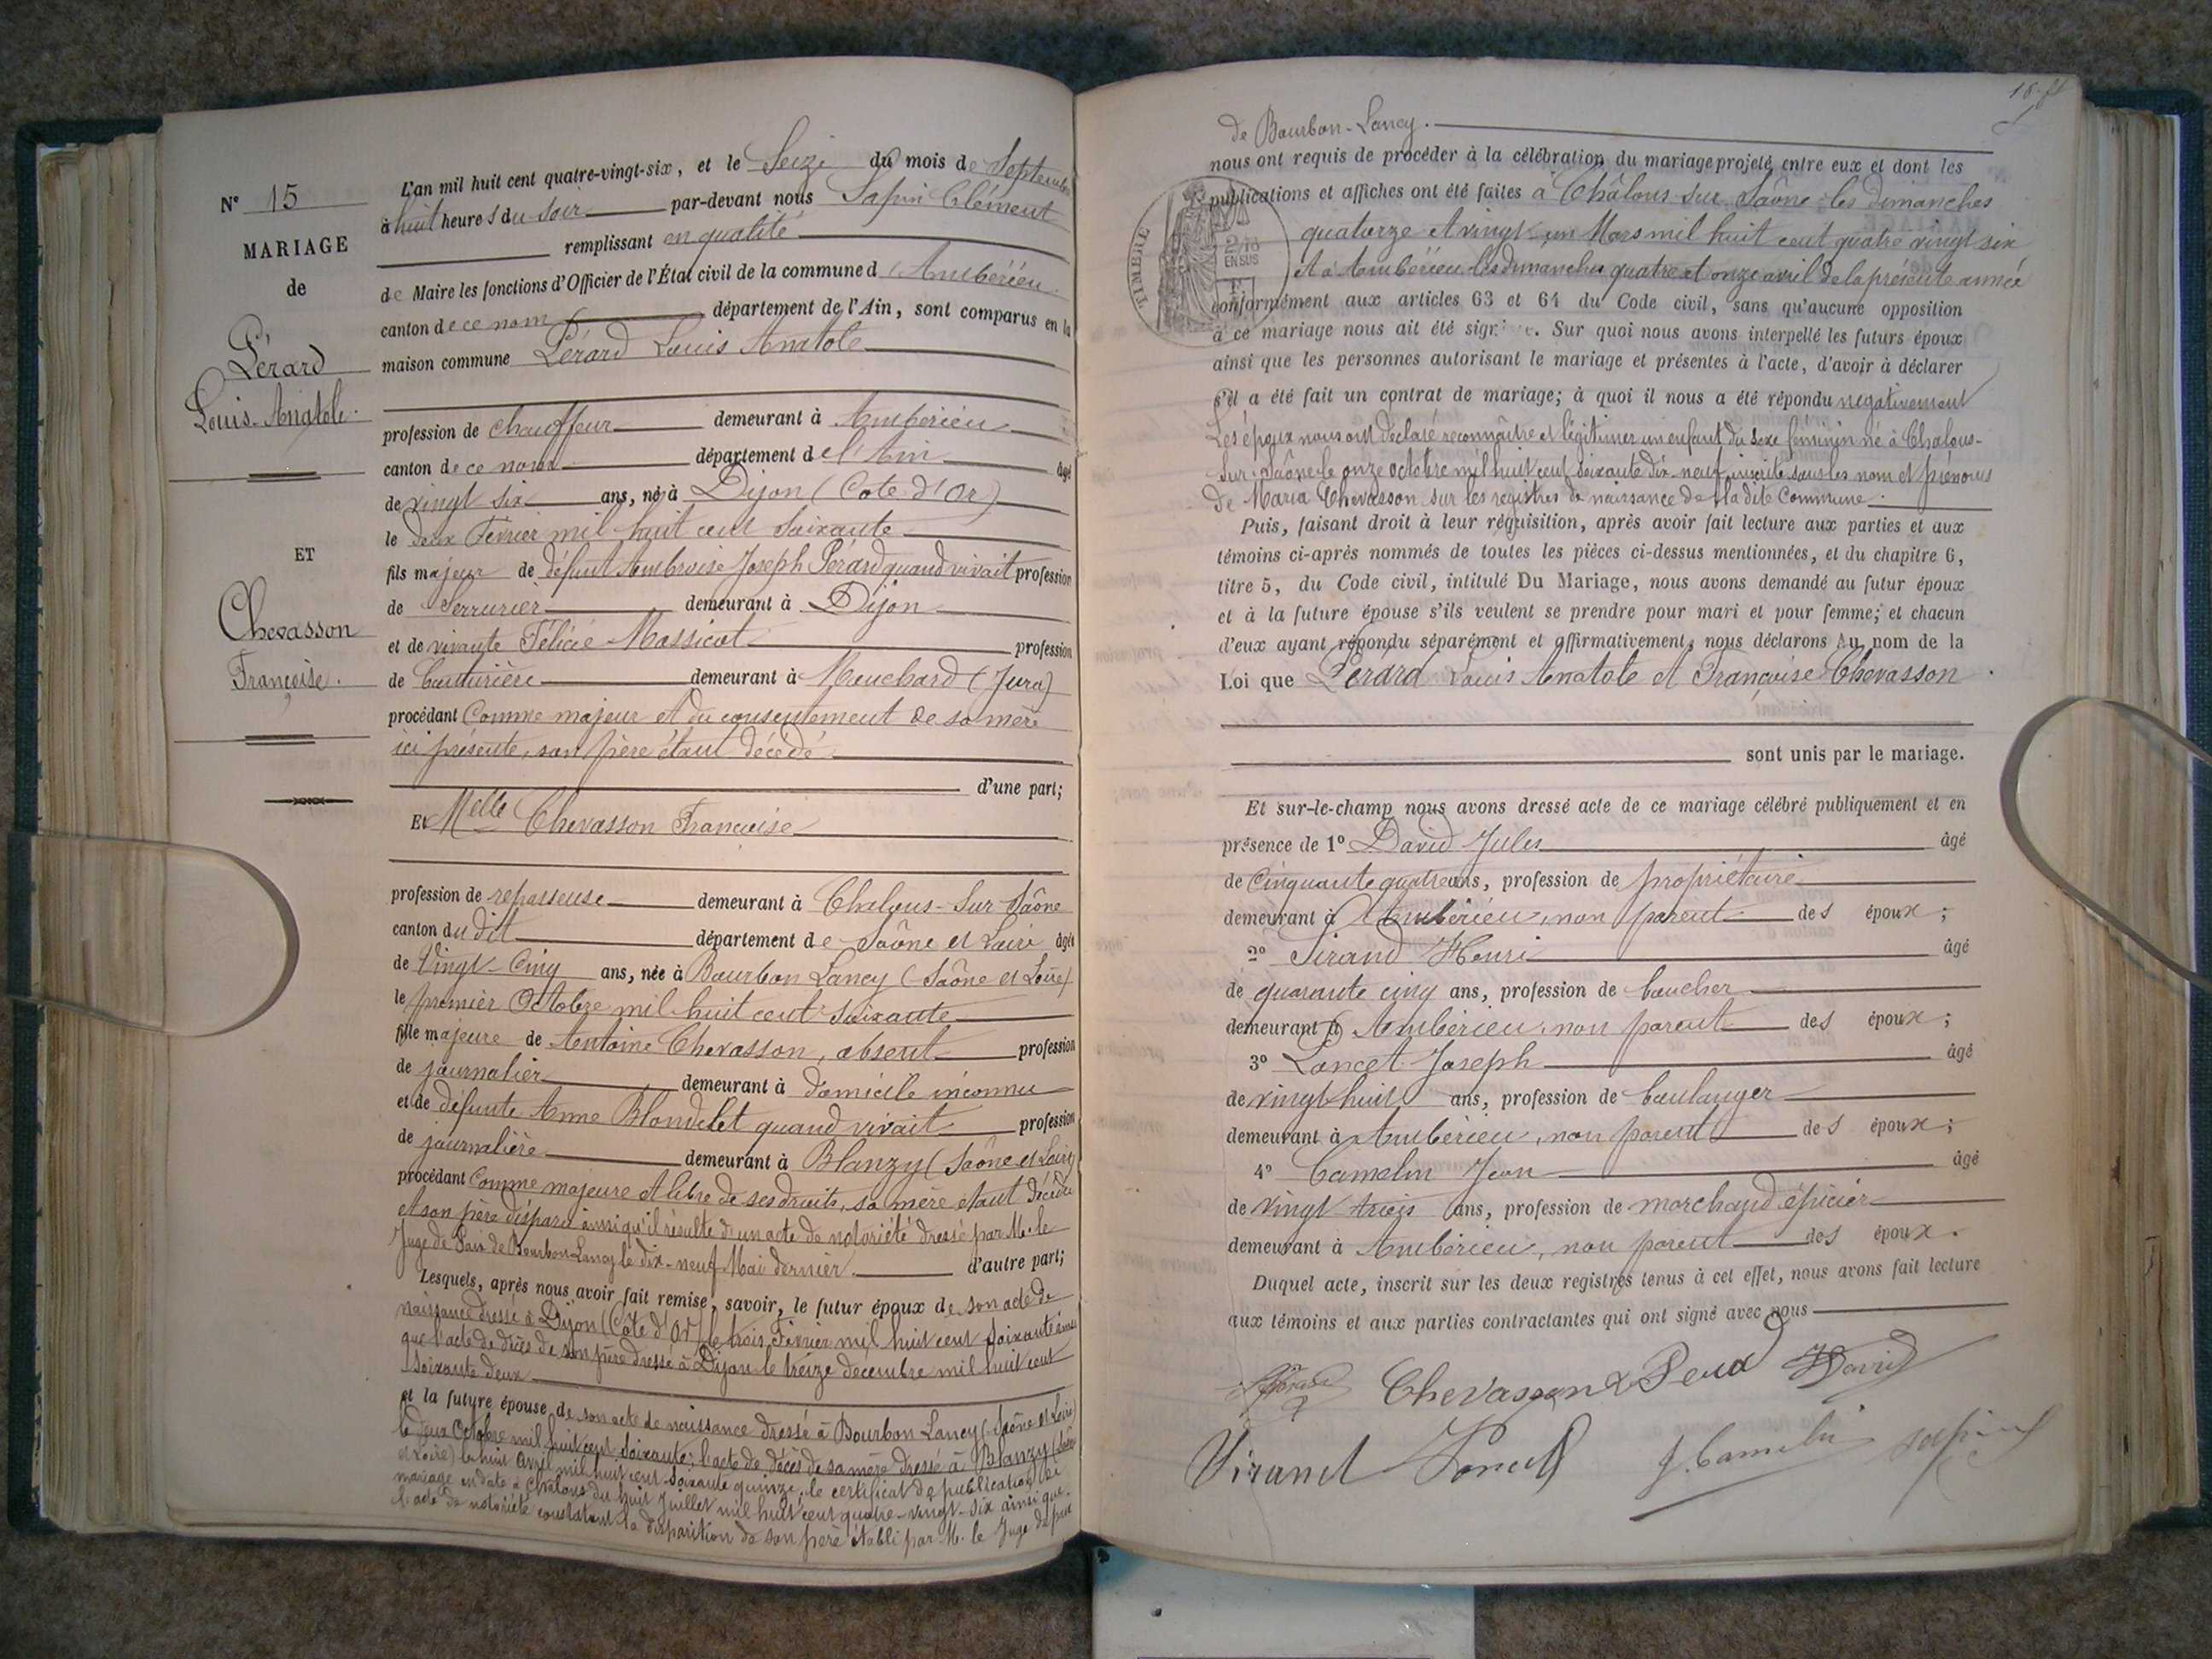 N° 15
MARIAGE
de
Pérard
Louis-Anatole.
ET
Chevasson
Françoise.
L'an mil huit cent quatre-vingt-six, et le Seize du mois de Septembre
à huit heures du soir par-devant nous Sapin Clément
remplissant en qualité
de Maire les fonctions d'Officier de l'État civil de la commune d'Ambérieu
canton de ce nom département de l'Ain, sont comparus en la
maison commune Pérard Louis Anatole
profession de chauffeur demeurant à Ambérieu
canton de ce nom département de l'Ain âgé
de vingt six ans, né à Dijon (Cote d'Or)
le deux Février mil huit cent soixante
fils majeur de défunt Ambroise Joseph Pérard quand vivait profession
de Serrurier demeurant à Dijon
et de vivante Félicie Massicot profession
de Couturière demeurant à Mouchard (Jura)
procédant comme majeur et du consentement de sa mère
ici présente, son père étant décédé
d'une part;
Et Melle Chevasson Françoise
profession de repasseuse demeurant à Chalons-sur-Saône
canton du dit département de Saône et Loire âgée
de Vingt-Cinq ans, née à Bourbon Lancy (Saône et Loire)
le premier Octobre mil huit cent soixante
fille majeure de Antoine Chevasson, absent profession
de journalier demeurant à domicile inconnu
et de défunte Anne Blondelet quand vivait profession
de journalière demeurant à Blanzy (Saône et Loire)
procédant comme majeure et libre de ses droits, sa mère étant décédée
et son père disparu ainsi qu'il résulte d'un acte de notoriété dressé par M. le
Juge de Paix de Bourbon-Lancy le dix-neuf Mai dernier. d'autre part;
Lesquels, après nous avoir fait remise, savoir, le futur époux de son acte de
naissance dressé à Dijon (Côte d'Or) le trois Février mil huit cent soixante ainsi
que l'acte de décès de son père dressé à Dijon le treize decembre mil huit cent
soixante deux
et la future épouse de son acte de naissance dressé à Bourbon Lancy (Saône et Loire)
le deux Octobre mil huit cent soixante; l'acte de décès de sa mère dressé à Blanzy (Saône
et Loire) le huit Avril mil huit cent soixante quinze; le certificat de publication de
mariage en date à Chalons du huit Juillet mil huit cent quatre-vingt-six ainsi que
l'acte de notoriété constatant la disparition de son père établi par M. le Juge de paix
de Bourbon-Lancy.
nous ont requis de procéder à la célébration du mariage projeté entre eux et dont les
publications et affiches ont été faites à Châlons-sur-Saône les dimanches
quatorze et vingt-un Mars mil huit cent quatre vingt six
et à Ambérieu les dimanches quatre et onze avril de la présente année
conformément aux articles 63 et 64 du Code civil, sans qu'aucune opposition
à ce mariage nous ait été signifiée. Sur quoi nous avons interpellé les futurs époux
ainsi que les personnes autorisant le mariage et présentes à l'acte, d'avoir à déclarer
s'il a été fait un contrat de mariage; à quoi il nous a été répondu négativement
Les époux nous ont déclaré reconnaître et légitimer un enfant du sexe féminin né à Chalons-
sur-Saône le onze octobre mil huit cent soixante dix-neuf inscrite sous les nom et prénoms
de Maria Chevasson sur les registres de naissance de la dite Commune.
Puis, faisant droit à leur réquisition, après avoir fait lecture aux parties et aux
témoins ci-après nommés de toutes les pièces ci-dessus mentionnées, et du chapitre 6,
titre 5, du Code civil, intitulé Du Mariage, nous avons demandé au futur époux
et à la future épouse s'ils veulent se prendre pour mari et pour femme; et chacun
d'eux ayant répondu séparément et affirmativement, nous déclarons Au nom de la
Loi que Pérard Louis Anatole et Françoise Chevasson.
sont unis par le mariage.
Et sur-le-champ nous avons dressé acte de ce mariage célébré publiquement et en
présence de 1° David Jules âgé
de cinquante quatre ans, profession de propriétaire
demeurant à Ambérieu, non parent des époux;
2° Sirand Henri âgé
de quarante cinq ans, profession de boucher
demeurant à Ambérieu, non parent des époux;
3° Loncet Joseph âgé
de vingt huit ans, profession de boulanger
demeurant à Ambérieu, non parent des époux;
4° Camelin Jean âgé
de vingt trois ans, profession de marchand épicier
demeurant à Ambérieu, non parent des époux.
Duquel acte, inscrit sur les deux registres tenus à cet effet, nous avons fait lecture
aux témoins et aux parties contractantes qui ont signé avec nous
Chevasson David
J. Camelin Sapin
TIMBRE
EN SUS